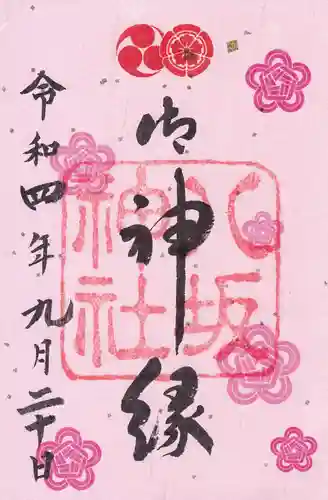 御神縁
八坂神社
令和四年九月二十日